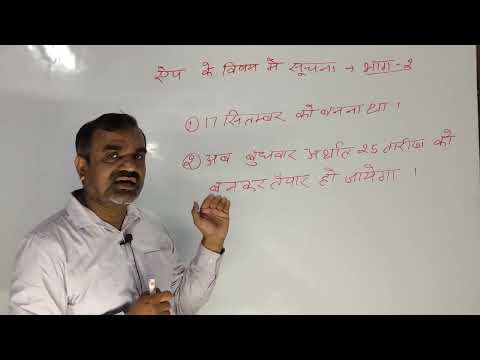 ऐप के विषय में सूचना → भाग-2
① 17 सितम्बर को बनना था ।
② अब बुधवार अर्थात 25 तारीख को
बनकर तैयार हो जायेगा ।